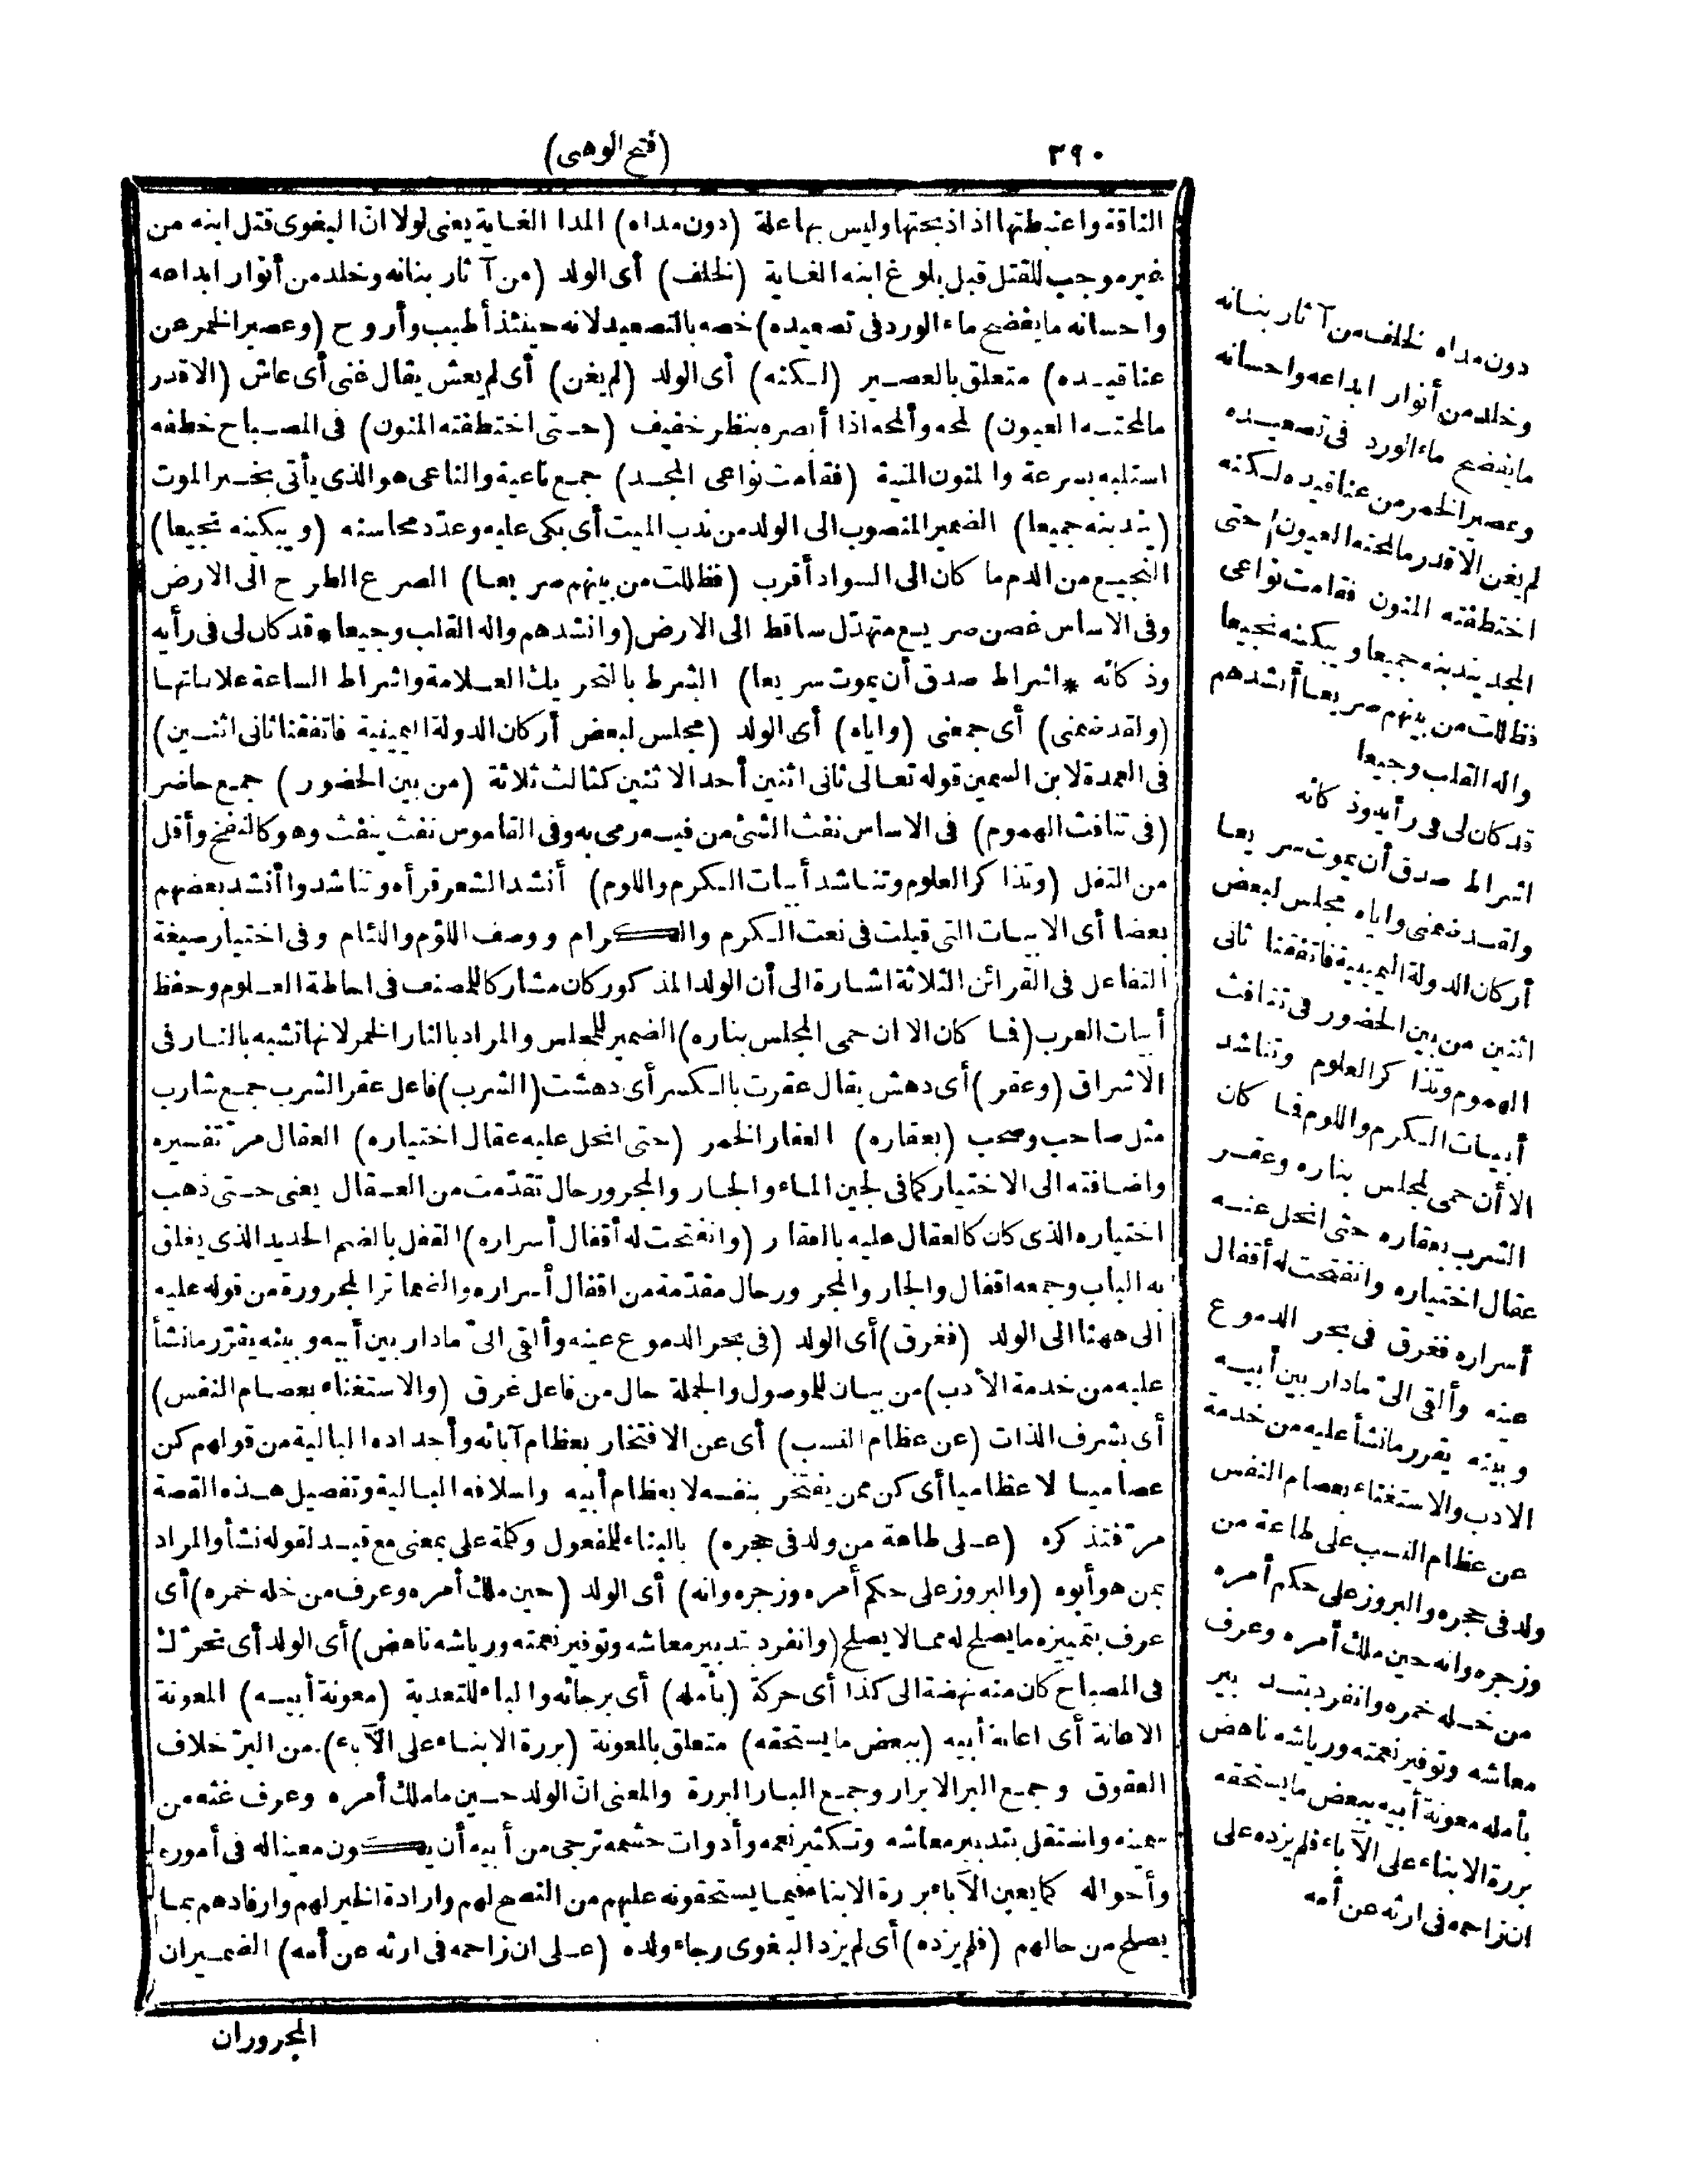 ٣٩٠
(فتح الوهبى)
الناقة واعتبطتها اذا ذبحتها وليس بها علة (دون مداه) المدا الغاية يعنى لولا انّ البغوى قتل ابنه من
غير موجب للقتل قبل بلوغ ابنه الغاية (لخلف) أى الولد (من آثار بنانه وخلد من أنوار ابداعه
واحسانه ما يفضح ماء الورد فى تصعيده) خصه بالتصعيد لانه حينئذ أطيب وأروح (وعصير الخمر عن
عناقيده) متعلق بالعصير (لكنه) أى الولد (لم يغن) أى لم يعش يقال غنى أى عاش (الا قدر
ما لمحته العيون) لمحه وألمحه اذا أبصره بنظر خفيف (حتى اختطفته المنون) فى المصباح خطفه
استلبه بسرعة والمنون المنية (فقامت نواعى المجد) جمع ناعية والناعى هو الذى يأتى بخبر الموت
(يندبنه جميعا) الضمير المنصوب الى الولد من ندب الميت أى بكى عليه وعدّد محاسنه (ويبكينه نجيعا)
النجيع من الدم ما كان الى السواد أقرب (فظللت من بينهم صريعا) الصرع الطرح الى الارض
وفى الاساس غصن صريع متهدّل ساقط الى الارض (وانشدهم واله القلب وجيعا * قد كان لى فى رأيه
وذكائه * اشراط صدق أن يموت سريعا) الشرط بالتحريك العلامة واشراط الساعة علاماتها
(ولقد ضمنى) أى جمعنى (واياه) أى الولد (مجلس لبعض أركان الدولة اليمينية فاتفقنا ثانى اثنين)
فى العمدة لابن السمين قوله تعالى ثانى اثنين أحد الاثنين كثالث ثلاثة (من بين الحضور) جمع حاضر
(فى تنافث الهموم) فى الاساس نفث الشئ من فيه رمى به وفى القاموس نفث ينفث وهو كالنفخ وأقل
من التفل (وتذاكر العلوم وتناشد أبيات الكرم واللوم) أنشد الشعر قرأه وتناشدوا أنشد بعضهم
بعضا أى الابيات التى قيلت فى نعت الكرم والكرام ووصف اللؤم واللئام وفى اختيار صيغة
التفاعل فى القرائن الثلاثة اشارة الى أن الولد المذكور كان مشاركا للمصنف فى احاطة العلوم وحفظ
أبيات العرب (فما كان الا ان حمى المجلس بناره) الضمير للمجلس والمراد بالنار الخمر لانها تشبه بالنار فى
الاشراق (وعقر) أى دهش يقال عقرت بالكسر أى دهشت (الشرب) فاعل عقر الشرب جمع شارب
مثل صاحب وصحب (بعقاره) العقار الخمر (حتى انحل عليه عقال اختياره) العقال مرّ تفسيره
واضافته الى الاختيار كما فى لجين الماء والجار والمجرور حال تقدّمت من العقال يعنى حتى ذهب
اختياره الذى كان كالعقال عليه بالعقار (وانفتحت له أقفال أسراره) القفل بالضم الحديد الذى يغلق
به الباب وجمعه اقفال والجار والمجرور حال مقدّمة من اقفال أسراره والضمائر المجرورة من قوله عليه
الى ههنا الى الولد (فغرق) أى الولد (فى بحر الدموع عينه وألقى الىّ ما دار بين أبيه وبينه يقرّر ما نشأ
عليه من خدمة الأدب) من بيان للموصول والجملة حال من فاعل غرق (والاستغناء بعصام النفس)
أى بشرف الذات (عن عظام النسب) أى عن الافتخار بعظام آبائه وأجداده البالية من قولهم كن
عصاميا لا عظاميا أى كن ممن يفتخر بنفسه لا بعظام أبيه واسلافه البالية وتفصيل هذه القصة
مرّ فتذكره (على طاعة من ولد فى حجره) بالبناء للمفعول وكلمة على بمعنى مع قيد لقوله نشأ والمراد
بمن هو أبوه (والبروز على حكم أمره وزجره وانه) أى الولد (حين ملك أمره وعرف من خله خمره) أى
عرف بتمييزه ما يصلح له مما لا يصلح (وانفرد بتدبير معاشه وتوفير نعمته ورياشه ناهض) أى الولد أى تحرّك
فى المصباح كان منه نهضة الى كذا أى حركة (بأمله) أى برجائه والباء للتعدية (معونة أبيه) المعونة
الاعانة أى اعانة أبيه (ببعض ما يستحقه) متعلق بالمعونة (بررة الابناء على الآباء) من البرّ خلاف
العقوق وجمع البر الابرار وجمع البار البررة والمعنى انّ الولد حين ما ملك أمره وعرف غثه من
سمينه واستقل بتدبير معاشه وتكثير نعمه وأدوات حشمه ترجى من أبيه أن يكون معينا له فى أموره
وأحواله كما يعين الآباء بررة الابناء فيما يستحقونه عليهم من النصح لهم وارادة الخير لهم وارفادهم بما
يصلح من حالهم (فلم يزده) أى لم يزد البغوى رجاء ولده (على ان زاحمه فى ارثه عن أمه) الضميران
المجروران
دون مداه لخلف من آثار بنانه
وخلد من أنوار ابداعه واحسانه
ما يفضح ماء الورد فى تصعيده
وعصير الخمر من عناقيده لكنه
لم يغن الا قدر ما لمحته العيون حتى
اختطفته المنون فقامت نواعى
المجد يندبنه جميعا ويبكينه نجيعا
فظللت من بينهم صريعا أنشدهم
واله القلب وجيعا
قد كان لى فى رأيه وذكائه
اشراط صدق أن يموت سريعا
ولقد ضمنى واياه مجلس لبعض
أركان الدولة اليمينية فاتفقنا ثانى
اثنين من بين الحضور فى تنافث
الهموم وتذاكر العلوم وتناشد
أبيات الكرم واللوم فما كان
الا أن حمى المجلس بناره وعقر
الشرب بعقاره حتى انحل عنه
عقال اختياره وانفتحت له أقفال
أسراره فغرق فى بحر الدموع
عينه وألقى الىّ ما دار بين أبيه
وبينه يقرر ما نشأ عليه من خدمة
الادب والاستغناء بعصام النفس
عن عظام النسب على طاعة من
ولد فى حجره والبروز على حكم أمره
وزجره وانه حين ملك أمره وعرف
من خله خمره وانفرد بتدبير
معاشه وتوفير نعمته ورياشه ناهض
بأمله معونة أبيه ببعض ما يستحقه
بررة الابناء على الآباء فلم يزده على
ان زاحمه فى ارثه عن أمه